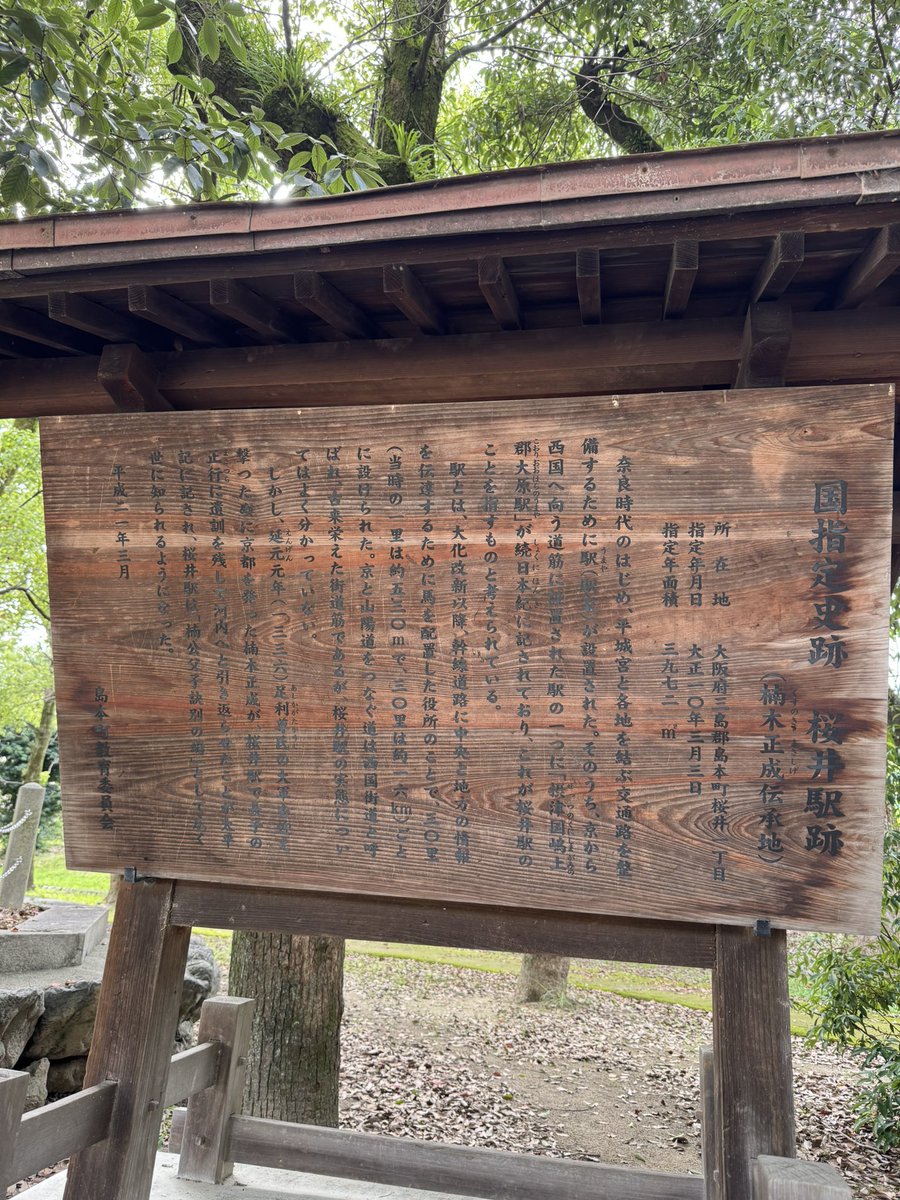 国指定史跡　桜井駅跡
（楠木正成伝承地）
くすのきまさしげ
所在地　大阪府三島郡島本町桜井一丁目
指定年月日　大正一〇年三月三日
指定年面積　三九七二㎡
奈良時代のはじめ、平城宮と各地を結ぶ交通路を整
備するために駅（駅家）が設置された。そのうち、京から
西国へ向う道筋に設置された駅の一つに「摂津国嶋上
郡大原駅」が続日本紀に記されており、これが桜井駅の
ことを指すものと考えられている。
駅とは、大化改新以降、幹線道路に中央と地方の情報
を伝達するために馬を配置した役所のことで、三〇里
（当時の一里は約五三〇ｍで、三〇里は約一六㎞）ごと
に設けられた。京と山陽道をつなぐ道は西国街道と呼
ばれ、古来栄えた街道筋であるが、桜井駅の実態につい
てはよく分かっていない。
しかし、延元元年（一三三六）足利尊氏の大軍を
撃つために京都を発った楠木正成が、桜井駅で長子の
正行に遺訓を残して河内へと引き返らせたことが太平
記に記され、桜井駅は、楠公父子訣別の場としてよく
世に知られるようになった。
平成二一年三月
島本町教育委員会